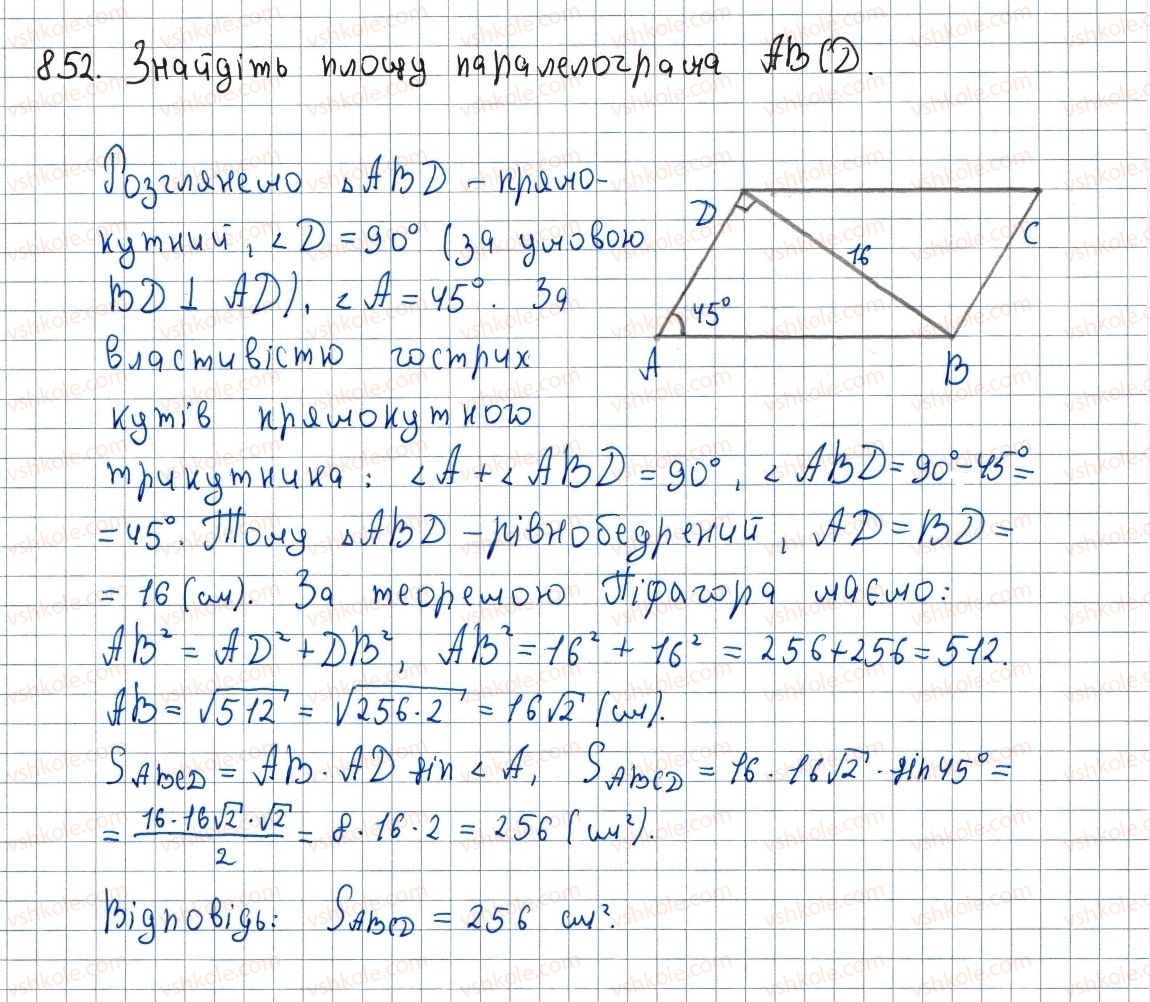 852. Знайдіть площу паралелограма ABCD.
Розглянемо ▵ABD – прямо-
кутний, ∠D = 90° (за умовою
BD ⊥ AD), ∠A = 45°. За
властивістю гострих
кутів прямокутного
трикутника: ∠A + ∠ABD = 90°, ∠ABD = 90° – 45° =
= 45°. Тому ▵ABD – рівнобедрений, AD = BD =
= 16 (см). За теоремою Піфагора маємо:
AB² = AD² + DB², AB² = 16² + 16² = 256 + 256 = 512.
AB = √512 = √256·2 = 16√2 (см).
S_ABCD = AB · AD sin ∠A, S_ABCD = 16 · 16√2 · sin 45° =
= 16·16√2·√2 / 2 = 8 · 16 · 2 = 256 (см²).
Відповідь: S_ABCD = 256 см².
D
C
16
45°
A
B
vshkole.com